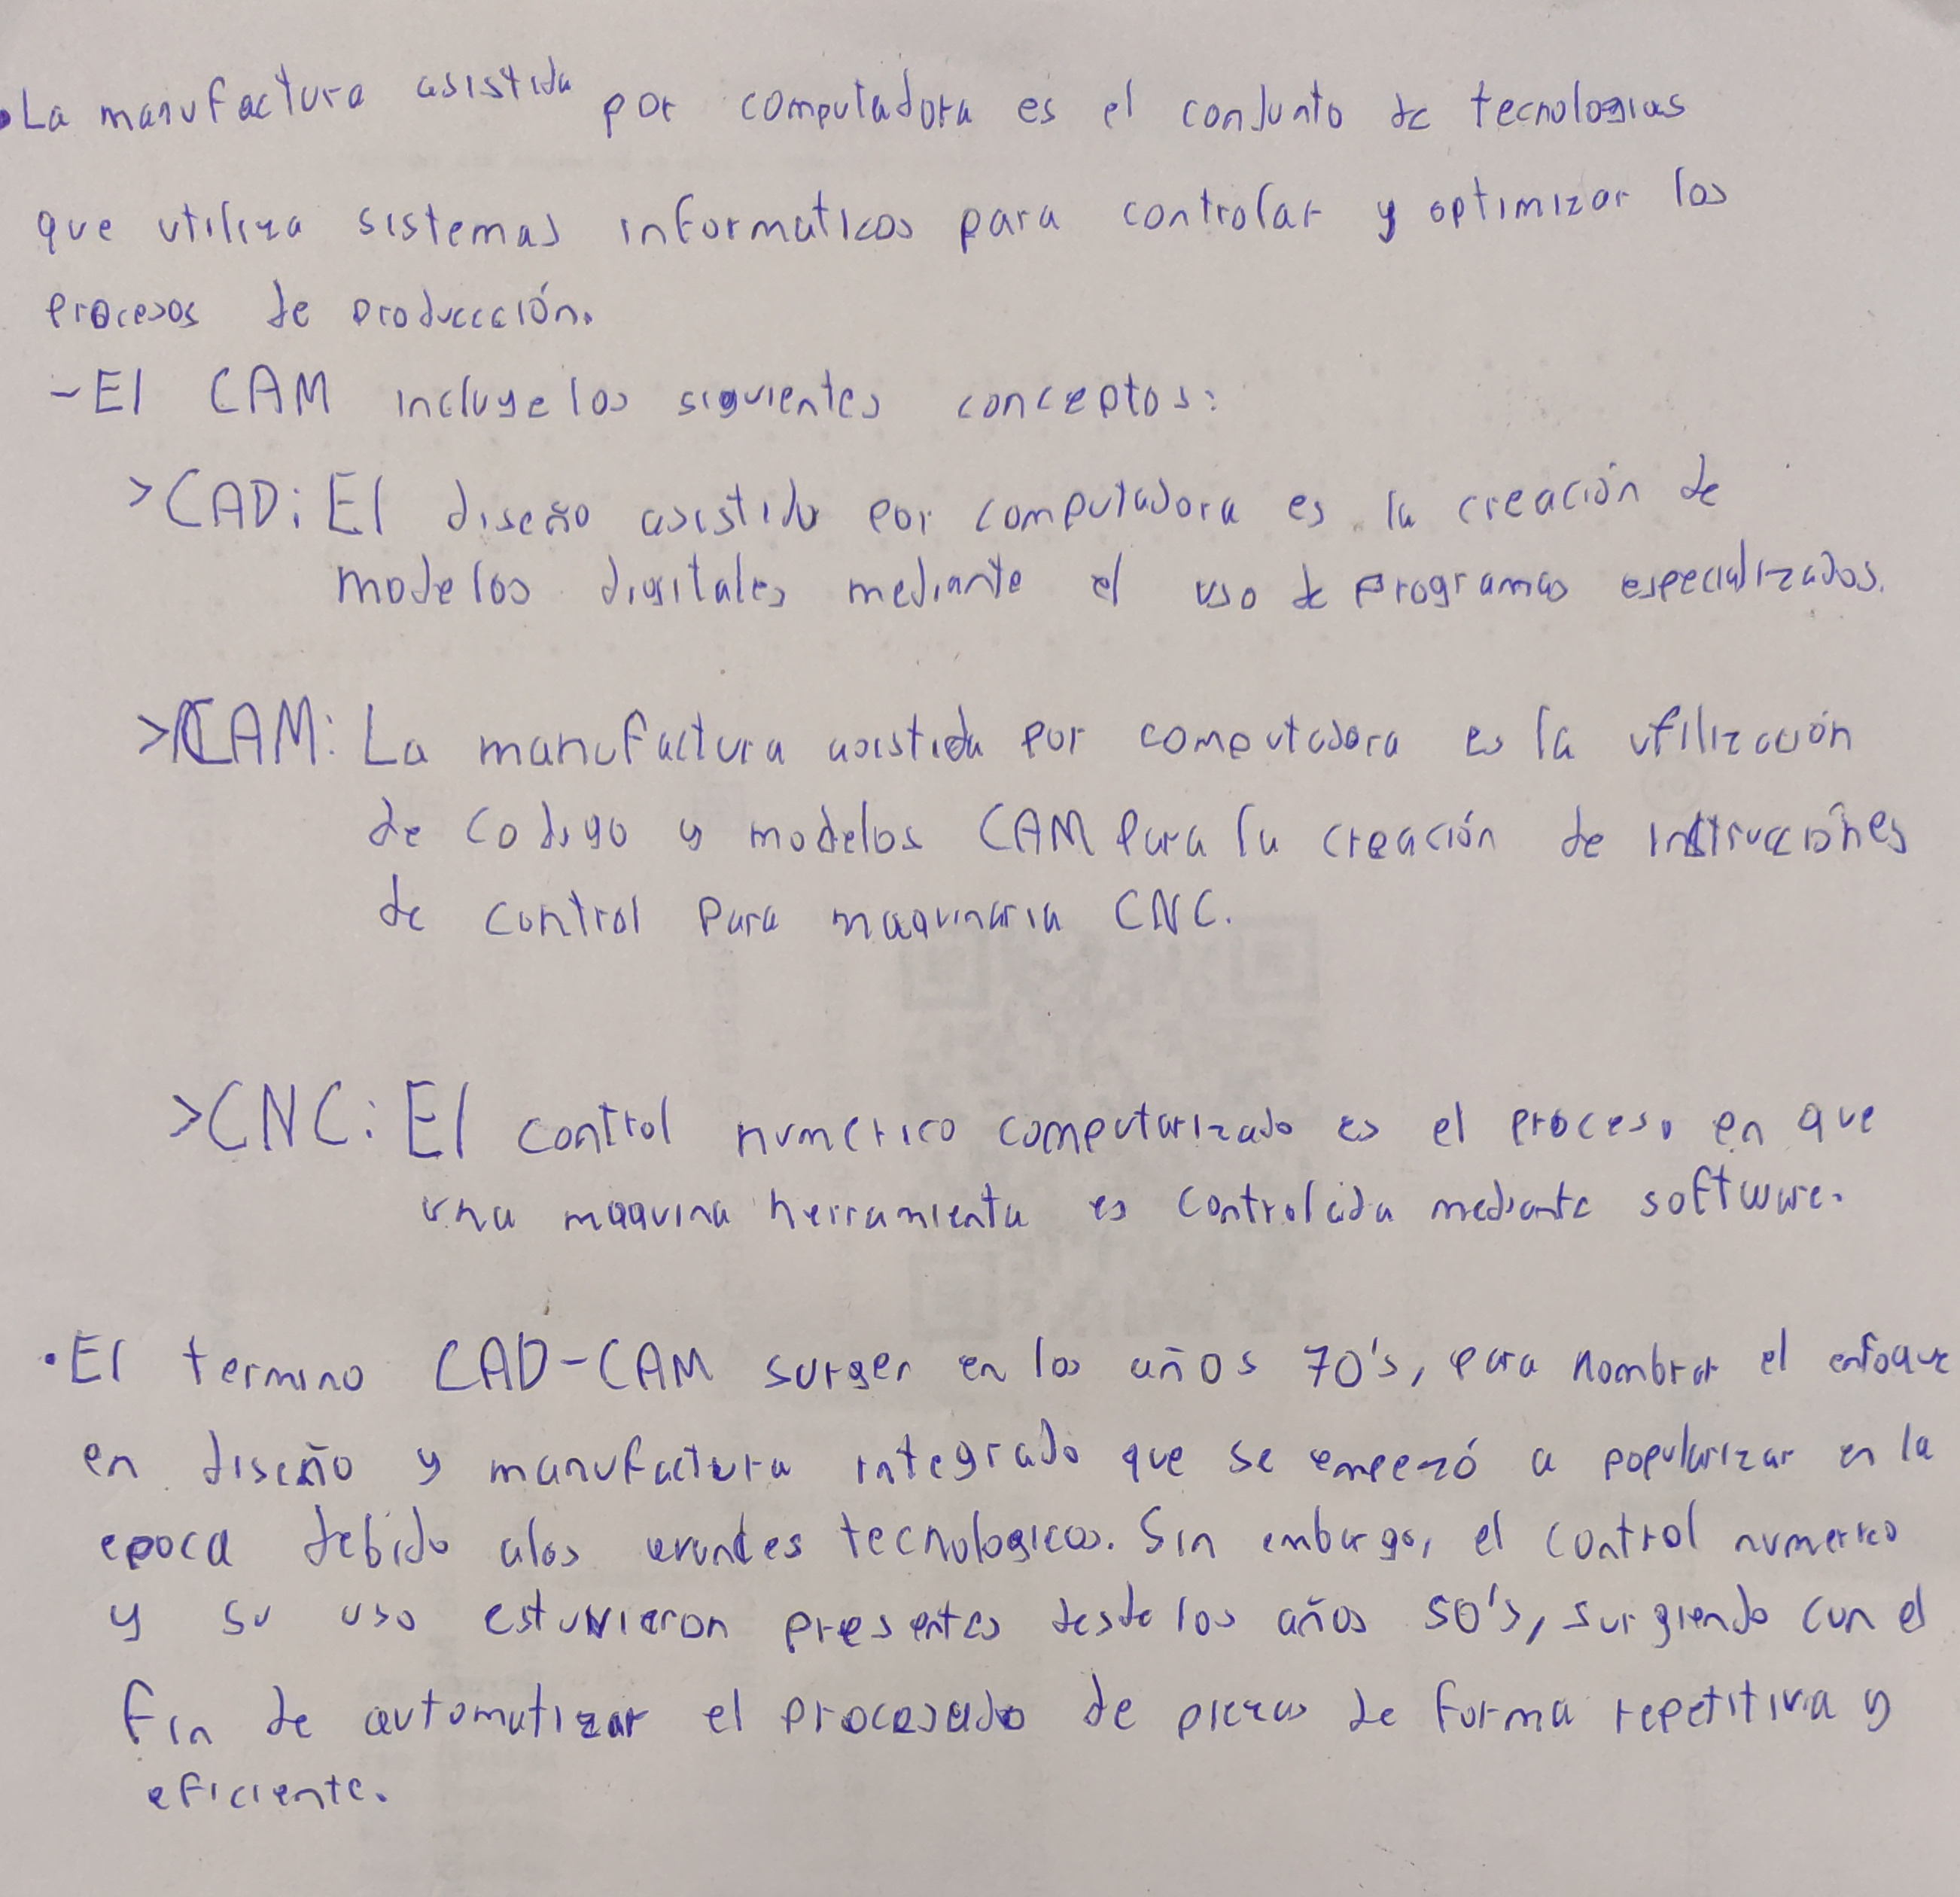 • La manufactura asistida por computadora es el conjunto de tecnologias
que utiliza sistemas informaticos para controlar y optimizar los
procesos de produccción.
- El CAM incluye los siguientes conceptos:
> CAD: El diseño asistido por computadora es la creación de
modelos digitales mediante el uso de programas especializados.
> CAM: La manufactura asistida por computadora es la utilización
de codigo y modelos CAM para la creación de instrucciónes
de control para maquinaria CNC.
> CNC: El control numerico computarizado es el proceso en que
una maquina herramienta es controlada mediante software.
• El termino CAD-CAM surgen en los años 70's, para nombrar el enfoque
en diseño y manufactura integrado que se empezó a popularizar en la
epoca debido a los tecnologicos. Sin embargo, el control numerico
y su uso estuvieron presentes desde los años 50's, surgiendo con el
fin de automatizar el procesado de piezas de forma repetitiva y
eficiente.